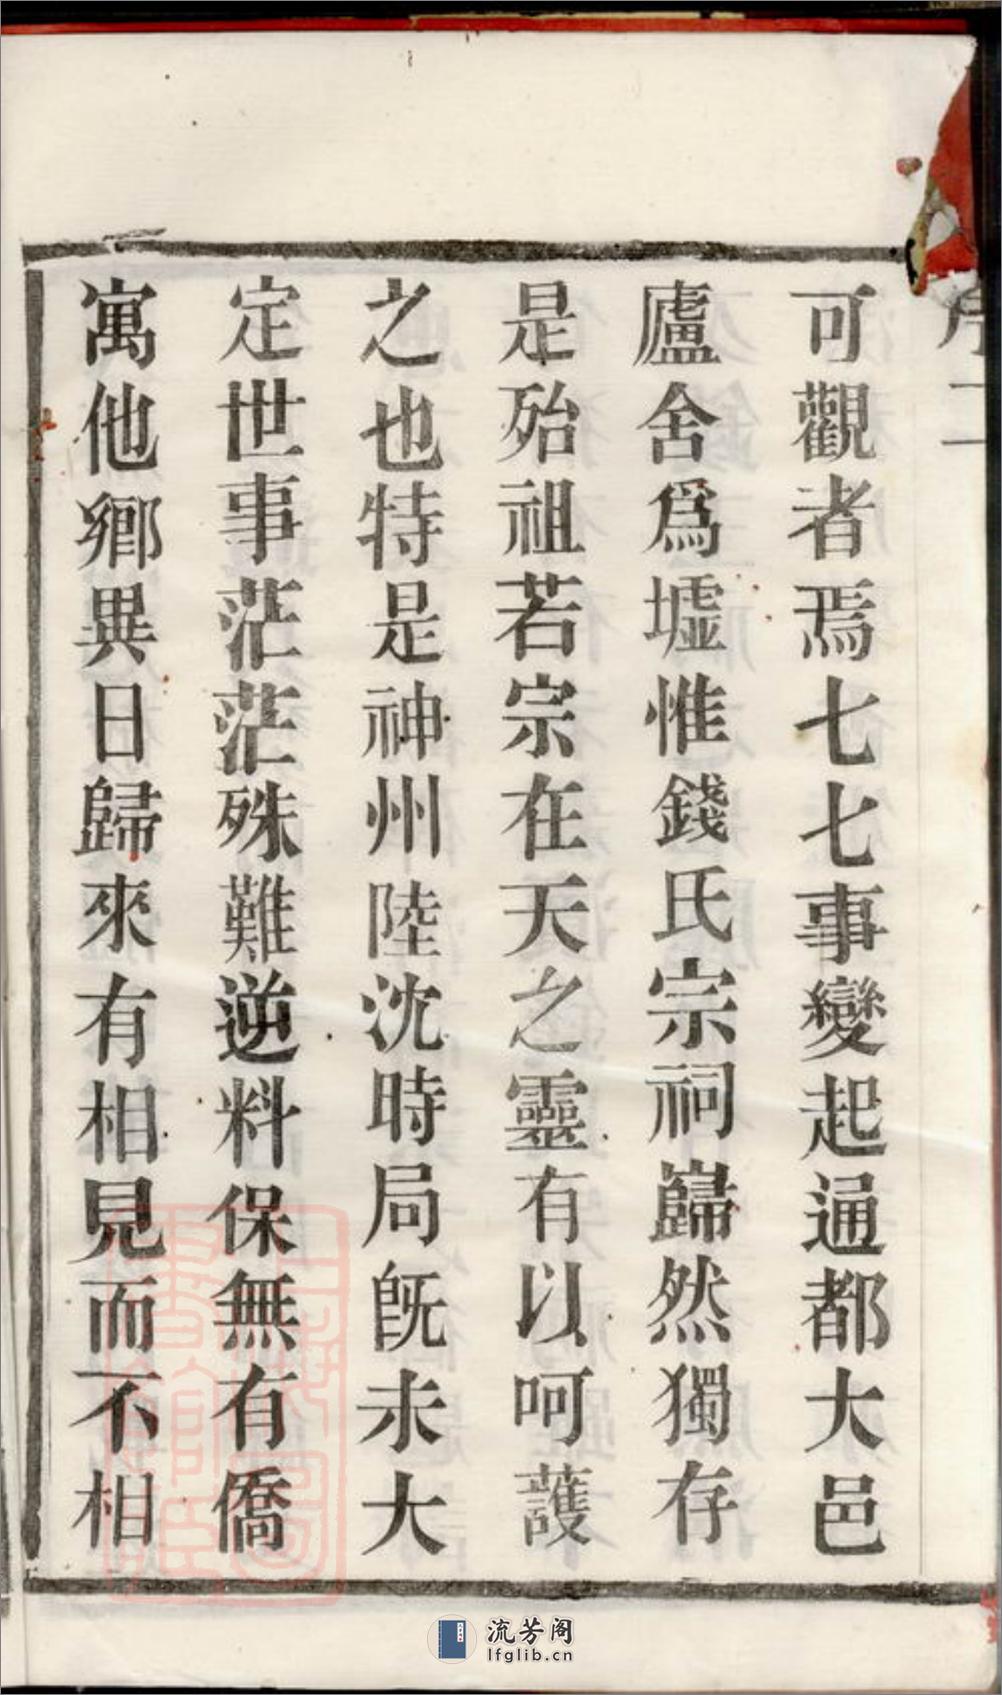 序二
可觀者焉七七事變起通都大邑
廬舍爲墟惟錢氏宗祠巋然獨存
是殆祖若宗在天之靈有以呵護
之也特是神州陸沈時局旣未大
定世事茫茫殊難逆料保無有僑
寓他鄉異日歸來有相見而不相
流芳阁
lfglib.cn